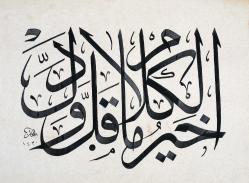 خير الكلام ما قل ودل